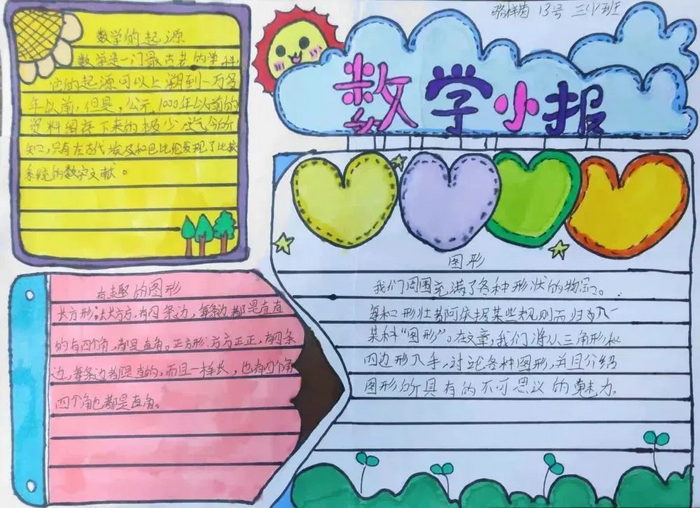 13号 三(4)班
数学小报
数学的起源
数学是一门最古老的学科,
它的起源可以上溯到一万多
年以前,但是,公元1000年以前的
资料留存下来的极少。迄今所
知,只有在古代埃及和巴比伦发现了比较
系统的数学文献。
有趣的图形
长方形:长长方方,有四条边,每条边都是直直
的有四个角,都是直角。正方形:方方正正,有四条
边,每条边都是直的,而且一样长,也有四个角
四个角也都是直角。
图形
我们周围充满了各种形状的物品。
每种形状都可依据某些规则而归为入
某种“图形”。在文章,我们将从三角形和
四边形入手,讨论各种图形,并且介绍
图形所具有的不可思议的魅力。